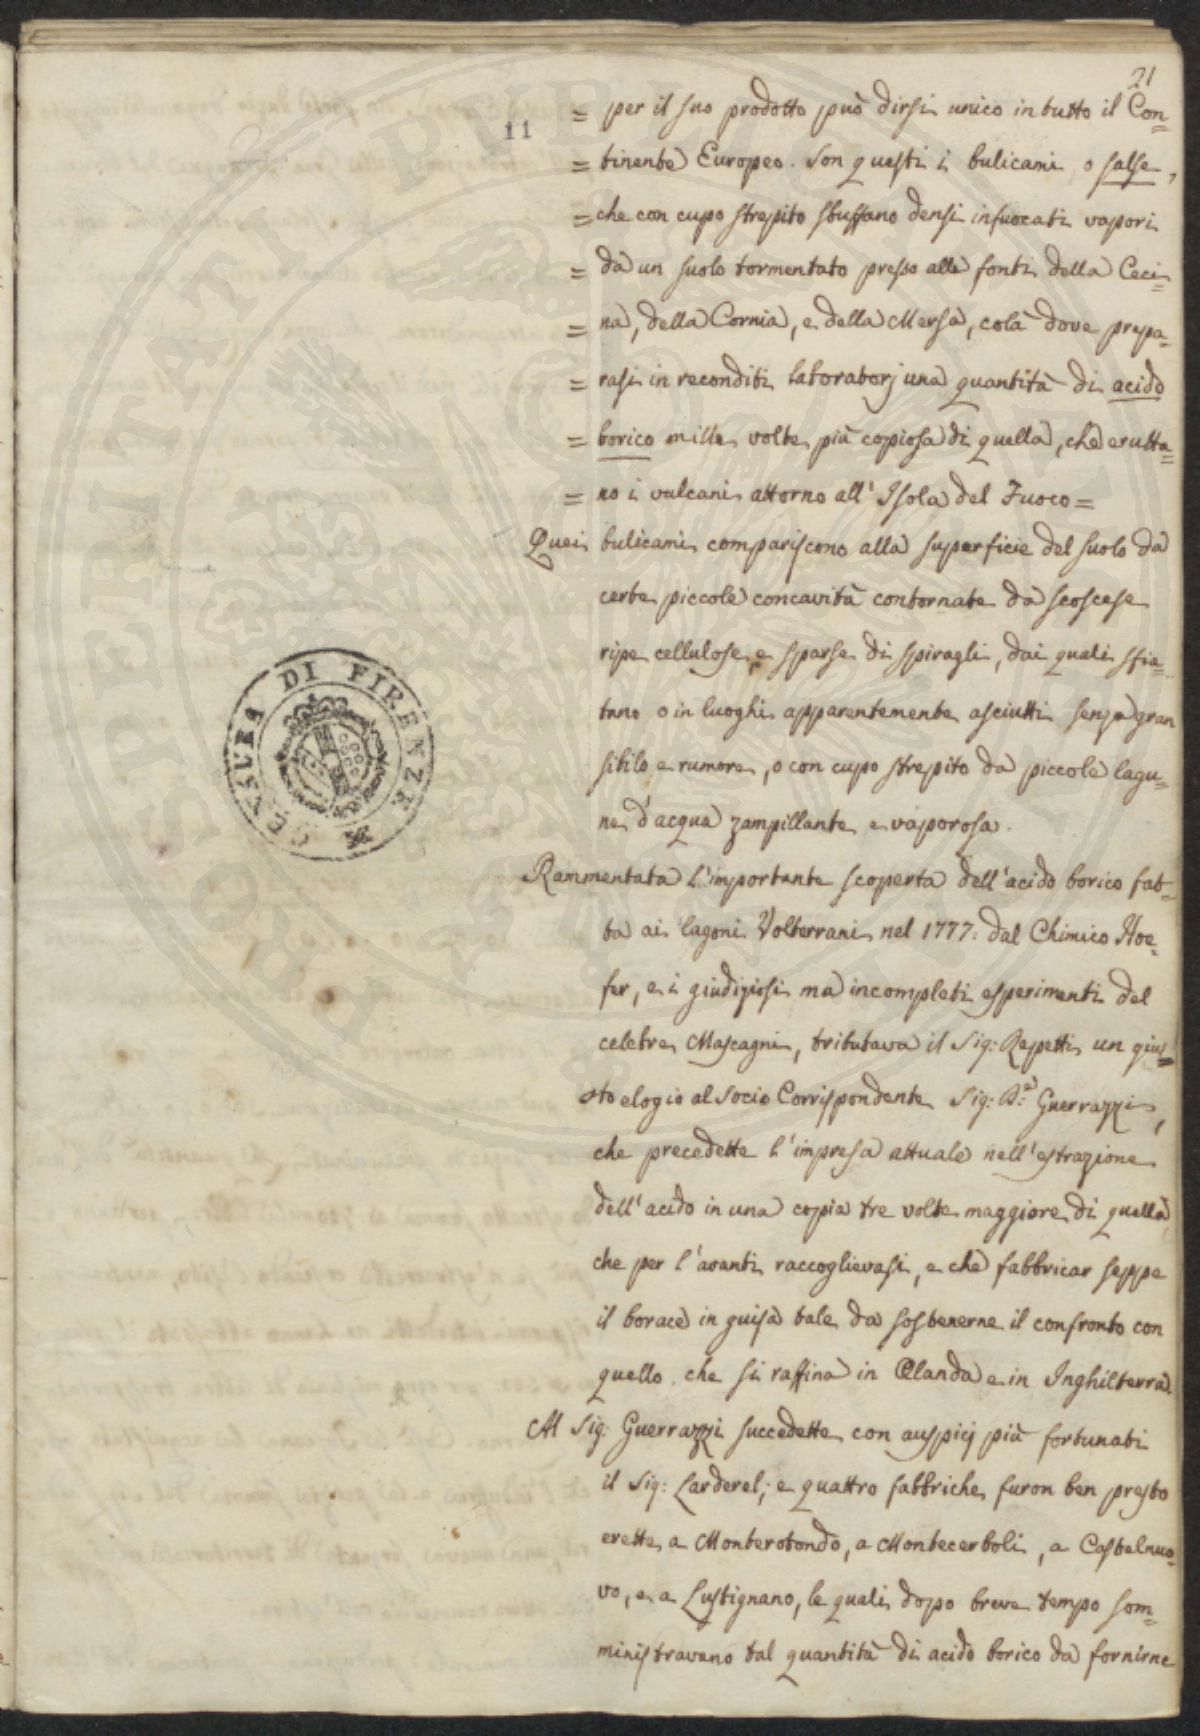 21
11
= per il suo prodotto può dirsi unico in tutto il Con=
= tinente Europeo. Son questi i bulicami o salse,
= che con cupo strepito sbuffano densi infuocati vapori
= da un suolo tormentato presso alle fonti della Ceci=
= na, della Cornia, e della Mersa, colà dove prepa=
= rasi in reconditi laboratorj una quantità di acido
= borico mille volte più copiosa di quella, che erutta=
= no i vulcani attorno all' Isola del Fuoco =
Quei bulicami compariscono alla superficie del suolo da
certe piccole concavità contornate da scoscese
ripe cellulose e sparse di spiragli, dai quali sfia=
tano o in luoghi apparentemente asciutti senza gran
sibilo e rumore, o con cupo strepito da piccole lagu=
ne d'acqua zampillante e vaporosa.
Rammentata l'importante scoperta dell'acido borico fat=
ta ai lagoni Volterrani nel 1777. dal Chimico Hoe=
fer, e i giudiziosi ma incompleti esperimenti del
celebre Mascagni, tributava il Sig: Repetti un giu=
sto elogio al Socio Corrispondente Sig: Guerrazzi,
che precedette l'impresa attuale nell'estrazione
dell'acido in una copia tre volte maggiore di quella,
che per l'avanti raccoglievasi, e che fabbricar seppe
il borace in guisa tale da sostenerne il confronto con
quello che si raffina in Olanda e in Inghilterra.
Al Sig: Guerrazzi succedette con auspicj più fortunati
il Sig: Larderel; e quattro fabbriche furon ben presto
erette a Monterotondo, a Montecerboli, a Castelnuo=
vo, e a Lustignano, le quali dopo breve tempo som=
ministravano tal quantità di acido borico da fornirne
CENSURA DI FIRENZE
PROSPERITATI PUBLICAE